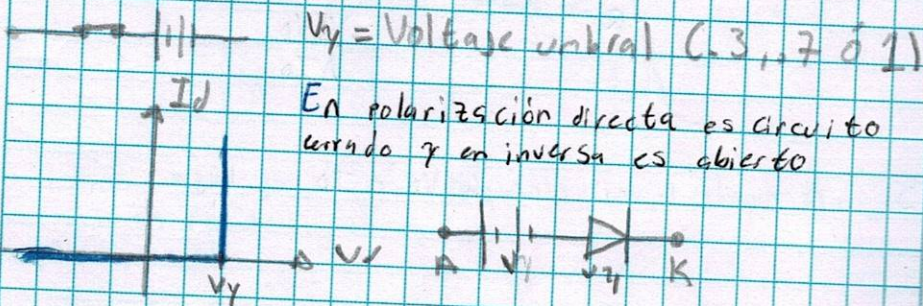 Vγ = Voltaje unbral (.3, .7 ó 1)
Id
En polarizsción directa es circuito
cerrado y en inversa es abierto
Vd
Vγ
A Vγ K